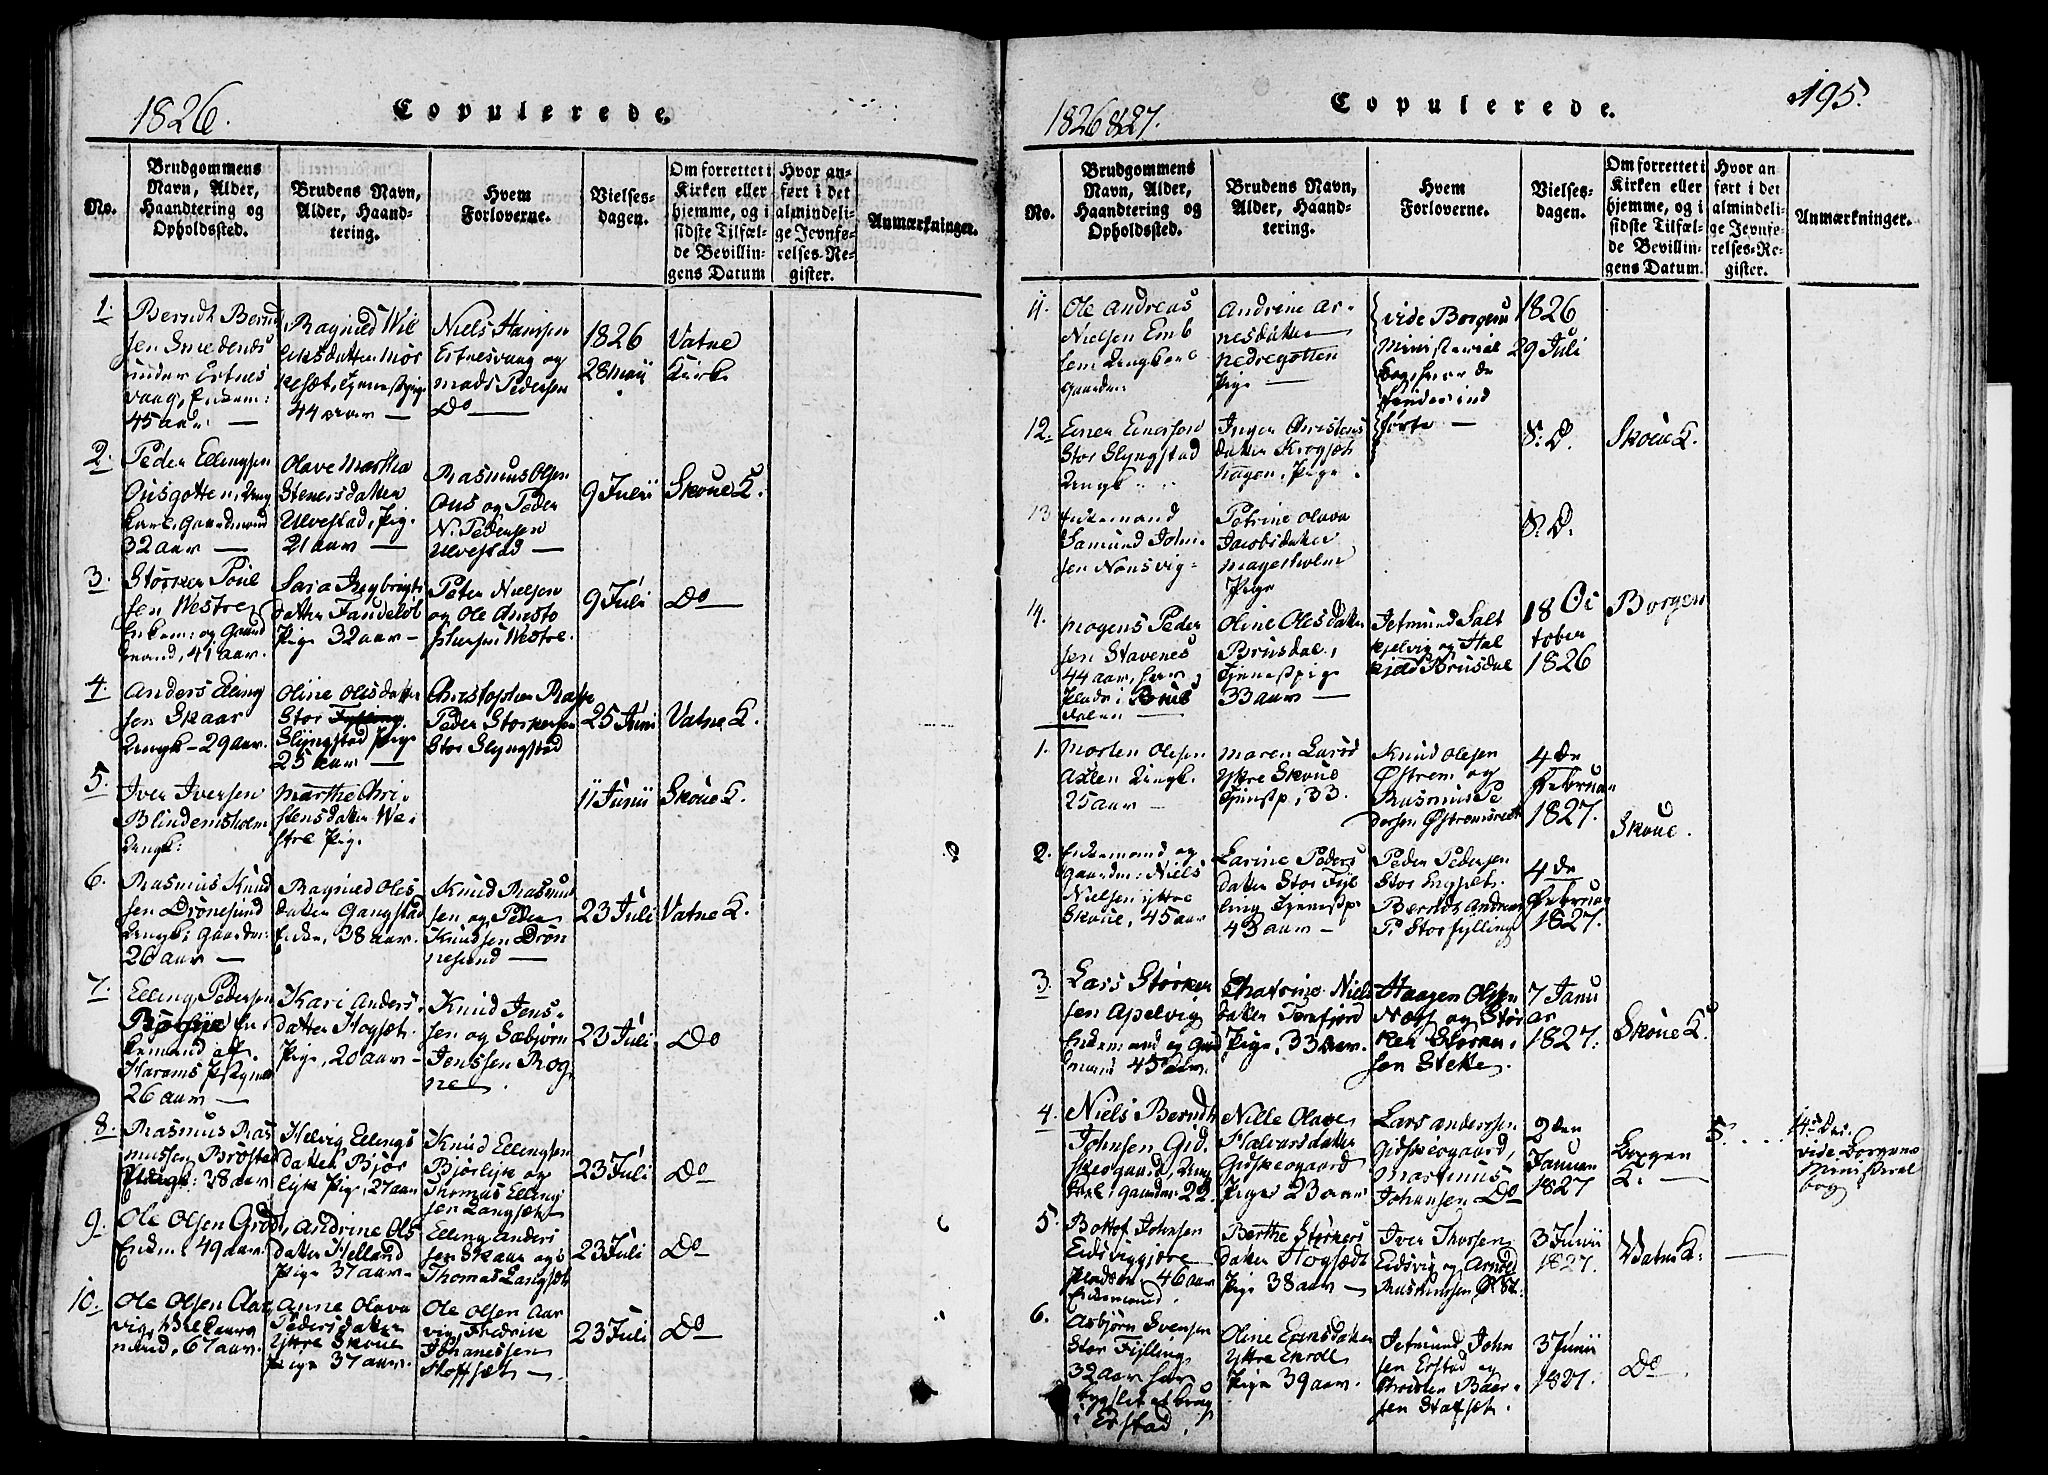 1826.
Copulerede.
No.
Brudgommens
Navn, Alder,
Haandtering og
Opholdssted.
Brudens Navn,
Alder, Haand-
tering.
Hvem
Forloverne.
Vielses-
dagen.
Om forrettet i
Kirken eller
hjemme, og i
sidste Tilfæl-
de Bevillin-
gens Datum
Hvor an-
ført i det
almindeli-
ge Jevnfø-
relses-Re-
gister.
Anmærkninger.
1.
Berndt Bernd
sen Smedenæs
under Ertnes
vaag, Enkem:
45 aar —
Ragnild Wil
lumsdatter Mor
sæt, Tjenestpige
44 aar —
Niels Hanssen
Ertnesvaag og
Mads Pedersen
Do —
1826
28 Maii
Vatne
Kirke
2.
Peder Ellingsen
Ousgotten, Ung
karl, Gaardmand
32 aar —
Olave Martha
Stenersdatter
Ulvestad, Pig.
21 aar —
Rasmus Olsen
Ous og Peder
N. Pedersen
Ulvestad —
9 Julii
Skoue K.
3.
Størker Poul
sen Westre
Enkem: og Gaard
mand, 41 aar.
Sara Ingbrigts
datter
Pige 32 aar —
Peter Nielsen
og Ole Christo
phersen Westre.
9 Juli
Do
4.
Anders Elling
sen Skaar
Ungk — 29 aar.
Oline Olesdatter
Stor
Slyngstad Pige
25 aar —
Christopher
Peder Storkersen
Stor Slyngstad
25 Juni
Vatne K.
5.
Iver Iversen
Blindemsholm
Ungk:
Marthe Chri-
stensdatter We-
stre Pig.
11 Junii
Skoue K.
6.
Rasmus Knud
sen Drönesund
Ungk: Gaardm:
26 aar —
Ragnild Oles
datter Gangstad
Enke, 38 aar.
Knud Rasmus
sen og Peder
Knudsen Drön
nesund —
23 Juli
Vatne K.
7.
Elling Pedersen
Rogne En-
kemand af
Harams Pstgield
26 aar —
Kari Anders-
datter Hogsæt.
Pige, 20 aar —
Knud Jens-
sen og Sæbjörn
Jenssen Rog
ne.
23 Juli
Do
8.
Rasmus Ras
mussen Brosta
Ungk: 28 aar
Helvig Ellings
datter Björ
lyk Pig., 27 aar
Knud Ellingsen
Bjorlyk og
Thomas Elling
sen Langsæt
23 Juli
Do
9.
Ole Olsen Gröd
Enkm: 49 aar.
Andrine Ols
datter Helland
Pige 37 aar —
Elling Anders
sen Skaar og
Thomas Langsæt
23 Juli
Do
10.
Ole Olsen Aar
vig,
mand, 67 aar.
Anne Olava
Pedersdatter
Yttre Skoue
Pige 37 aar.
Ole Olsen Aar
vig, Fredrik
Johanessen
Hoffsæt —
23 Juli
Do
1826 & 27.
Copulerede.
195.
No.
Brudgommens
Navn, Alder,
Haandtering og
Opholdssted.
Brudens Navn,
Alder, Haand-
tering.
Hvem
Forloverne.
Vielses-
dagen.
Om forrettet i
Kirken eller
hjemme, og i
sidste Tilfæl-
de Bevillin-
gens Datum.
Hvor an-
ført i det
almindeli-
ge Jevnfø-
relses-Re-
gister.
Anmærkninger.
11.
Ole Andreas
Nielsen Emb
lem Ungkarl
Gaardm:
Andrine Ar-
nesdatter
Nedregotten
Pige —
vide Borgens
Ministerial
bog, hvor de
findes ind
førte —
1826
29 Juli
12.
Einer Einersen
Stor Slyngstad
Ungk
Inger Christens
datter Krogsæt
hagen, Pige.
S: D.
Skoue K.
13.
Enkemand
Samund John-
sen Nonsvig —
Petrine Olava
Jacobsdatter
Magerholm
Pige
S: D.
14.
Mogens Peder
sen Stavenes
44 aar,
i Brus
dalen —
Oline Olesdatter
Brusdal,
Tjenestpige
33 aar —
Jetmund Salt
kjelvig og Hal
kjeld Brusdal
18 Oc
tober
1826
Borgen
1.
Morten Olesen
Axlen Ungk.
25 aar —
Maren Larsd
Yttre Skoue
Tjenestp, 33.
Knud Olesen
Østrem og
Rasmus Pe
dersen Østremsvedt
4 de
Februar
1827.
Skoue.
2.
Enkemand og
Gaardm: Niels
Nielsen yttre
Skoue, 45 aar
Larine Peders
datter Stor Fyl
ling Tjenestp
43 aar —
Peder Pedersen
Stor Engset.
Berndt Andreas
P. Stor fylling
4 de
Februar
1827.
3.
Lars Størker
sen Apelvig
Enkemand og Gaard
mand 45 aar.
Chatrine Niels
datter Tennfjord
Pige, 33 aar.
Haagen Olsen
Nogs og Stör
ker Storker-
sen Steke.
7 Janu
ar
1827.
Skoue K.
4.
Niels Berndt
Johnsen Gid.
skeogaard, Ung
karl: Gaardm: 22
Nille Olave
Halvarsdatter
Gidskeogaard
Pige 23 aar
Lars Anderssen
Gidskeogaard,
Martinus
Johansen Do
2 den
Januar
1827
Borgen
K: —
5. . . . .
14 de.
vide Borgens
Ministerial
bog
5.
Bottof Johnsen
Eidsviggjøre
46 aar
Enkemand.
Berthe Størkers
datter Hogsædt
Pige 38 aar —
Iver Thorsen
Eidsvig og Arnold
Rasmussen
3 Junii
1827.
Vatne K:
6.
Asbjørn Svensen
Stor Fylling
32 aar har
bygslet et brug
i Erstad.
Oline Einersdatter
Yttre Enroll
Pige 39 aar.
Jetmund John
sen Erstad og
Baar-
sen Stafset.
3 Junii
1827.
Do